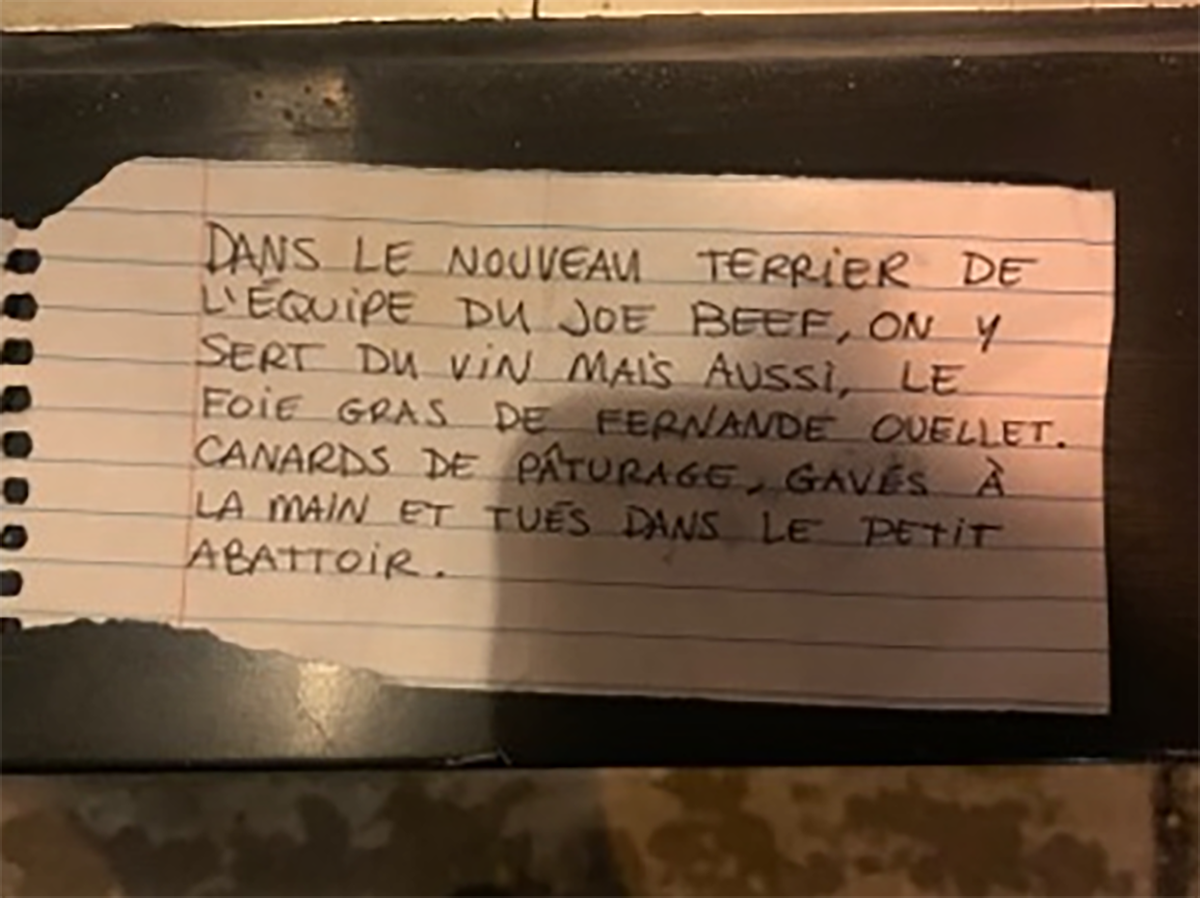 DANS LE NOUVEAU TERRIER DE
L'ÉQUIPE DU JOE BEEF, ON Y
SERT DU VIN MAIS AUSSI, LE
FOIE GRAS DE FERNANDE OUELLET.
CANARDS DE PÂTURAGE, GAVÉS À
LA MAIN ET TUÉS DANS LE PETIT
ABATTOIR.